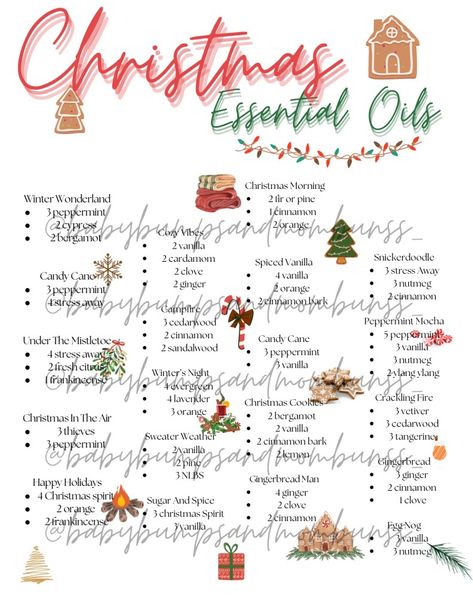 Christmas
Essential Oils
Winter Wonderland
3 peppermint
2 cypress
2 bergamot
Candy Cane
3 peppermint
1 stress away
Under The Mistletoe
4 stress away
2 fresh citrus
1 frankincense
Christmas In The Air
3 thieves
3 peppermint
Happy Holidays
4 Christmas spirit
2 orange
2 frankincense
Cozy Vibes
2 vanilla
2 cardamom
2 clove
2 ginger
Campfire
3 cedarwood
2 cinnamon
2 sandalwood
Winter's Night
4 evergreen
4 lavender
3 orange
Sweater Weather
2 vanilla
2 pine
3 NLBS
Sugar And Spice
3 christmas Spirit
3 vanilla
Christmas Morning
2 fir or pine
1 cinnamon
2 orange
Spiced Vanilla
4 vanilla
2 orange
2 cinnamon bark
Candy Cane
3 peppermint
3 vanilla
Christmas Cookies
2 bergamot
2 vanilla
2 cinnamon bark
2 lemon
Gingerbread Man
4 ginger
2 clove
2 cinnamon
Snickerdoodle
3 stress Away
3 nutmeg
2 cinnamon
Peppermint Mocha
5 peppermint
3 vanilla
3 nutmeg
2 ylang ylang
Crackling Fire
3 vetiver
3 cedarwood
3 tangerine
Gingerbread
3 ginger
2 cinnamon
1 clove
Egg Nog
3 vanilla
3 nutmeg
@babybumpsandmombunss_
@babybumpsandmombunss_
@babybumpsandmombunss_
@babybumpsandmombunss_
@babybumpsandmombunss_